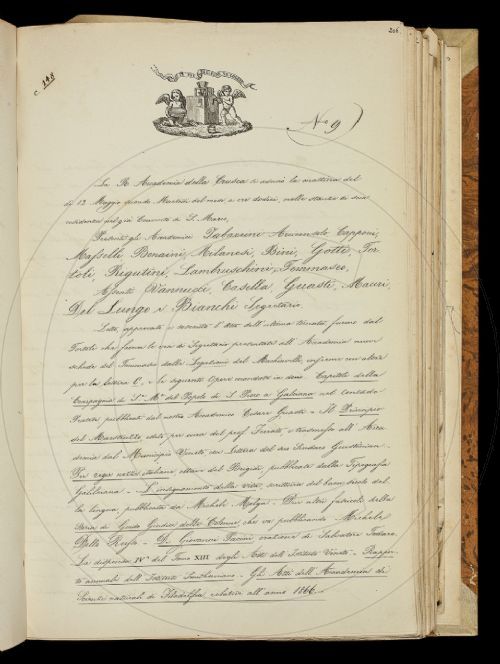 206.
c. 148
No 9)
La R. Accademia della Crusca si adunò la mattina del
dì 12 Maggio secondo Martedì del mese a ore dodici, nelle stanze di sua
residenza nel già Convento di S. Marco,
Presenti gli Accademici Tabarrini Arciconsolo Capponi,
Maffeili Bonaini, Milanesi, Bini, Gotti, Tor
toli, Rigutini, Lambruschini Tommaseo,
Assenti Vannucci, Casella, Guasti, Mauri,
Del Lungo e Bianchi Segretario.
Letto, approvato e descritto l'Atto dell'ultima tornata, furono dal
Tortoli che faceva le veci di Segretario presentate all'Accademia nuove
schede del Tommaseo dalle Legazioni del Machiavelli, insieme con altre
per la lettera C, e le seguenti Opere mandate in dono. Capitoli della
Compagnia di S.ta M.a del Popolo di S. Piero a Galciana nel contado
Pratese, pubblicati dal nostro Accademico Cesare Guasti - Il
del edito per cura del prof. Ferrato, e trasmesso all'Acca
demia dal Municipio Veneto con Lettera del suo Sindaco Giustinian.
Per regie nozze italiane, ottave del Brigidi, pubblicate dalla Tipografia
Galileiana - L'insegnamento della vita, scrittura del buon secolo del
la lingua, pubblicata da Michele Melga - Due altri fascicoli della
Storia di Guido Giudice delle Colonne che va pubblicando Michele
Dello Russo - Di Giovanni Pacini orazione di Salvatore
La dispensa IV.a del Tomo XIII degli Atti dell'Istituto Veneto - Rappor
to annuale dell'Istituto Smithsoniano - Gli Atti dell'Accademia di
Scienze naturali di Filadelfia relativi all'anno 1866.